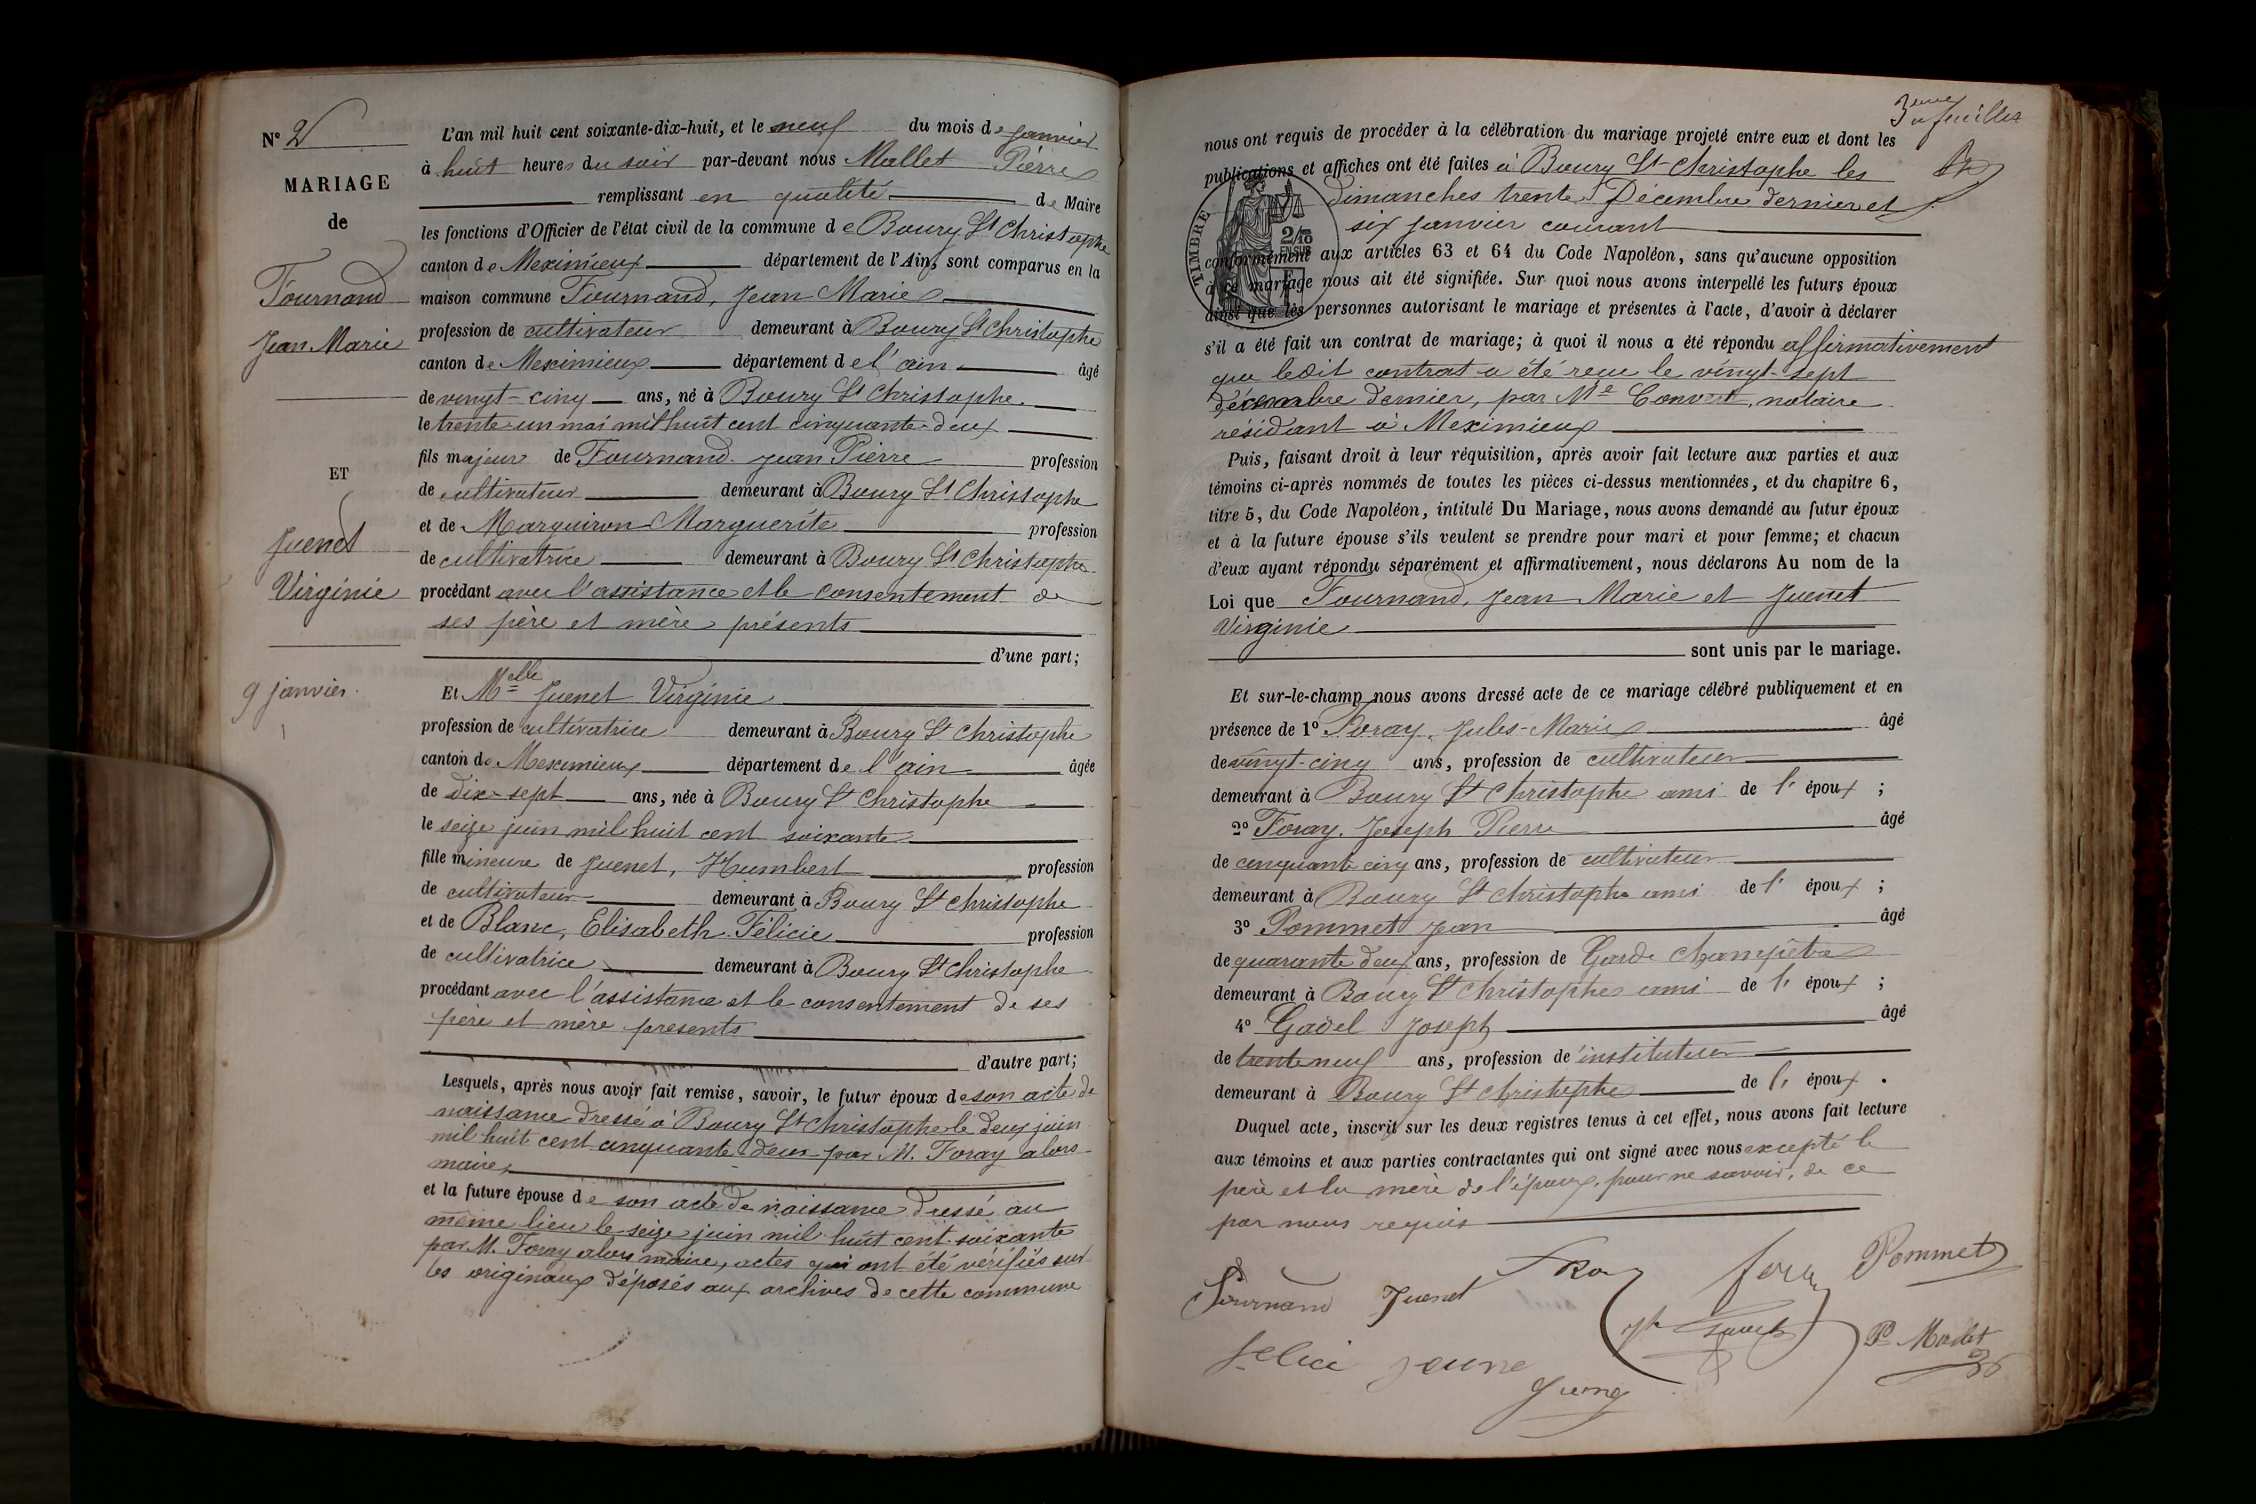 N° 2
MARIAGE
de
Fournand
Jean Marie
ET
Juenet
Virginie
9 janvier.
L'an mil huit cent soixante-dix-huit, et le neuf du mois de janvier
à huit heures du soir par-devant nous Mallet Pierre
remplissant en qualité de Maire
les fonctions d'Officier de l'état civil de la commune de Bourg St Christophe
canton de Meximieux département de l'Ain, sont comparus en la
maison commune Fournand, Jean Marie
profession de cultivateur demeurant à Bourg St Christophe
canton de Meximieux département de l'ain âgé
de vingt-cinq ans, né à Bourg St Christophe.
le trente-un mai mil huit cent cinquante-deux
fils majeur de Fournand Jean Pierre profession
de cultivateur demeurant à Bourg St Christophe
et de Marguiron Marguerite profession
de cultivatrice demeurant à Bourg St Christophe
procédant avec l'assistance et le consentement de
ses père et mère présents
d'une part;
Et Melle Juenet Virginie
profession de cultivatrice demeurant à Bourg St Christophe
canton de Meximieux département de l'ain âgée
de dix-sept ans, née à Bourg St Christophe
le seize juin mil huit cent soixante
fille mineure de Juenet, Humbert profession
de cultivateur demeurant à Bourg St Christophe
et de Blanc, Elisabeth Félicie profession
de cultivatrice demeurant à Bourg St Christophe
procédant avec l'assistance et le consentement de ses
père et mère présents
d'autre part;
Lesquels, après nous avoir fait remise, savoir, le futur époux de son acte de
naissance dressé à Bourg St Christophe le deux juin
mil huit cent cinquante deux par M. Foray alors
maire,
et la future épouse de son acte de naissance dressé au
même lieu le seize juin mil huit cent soixante
par M. Foray alors maire, actes qui ont été vérifiés sur
les originaux déposés aux archives de cette commune
3eme feuillet
nous ont requis de procéder à la célébration du mariage projeté entre eux et dont les
publications et affiches ont été faites à Bourg St Christophe les
dimanches trente Décembre dernier et
six janvier courant
TIMBRE
2/10
EN SUS
conformément aux articles 63 et 64 du Code Napoléon, sans qu'aucune opposition
à ce mariage nous ait été signifiée. Sur quoi nous avons interpellé les futurs époux
ainsi que les personnes autorisant le mariage et présentes à l'acte, d'avoir à déclarer
s'il a été fait un contrat de mariage; à quoi il nous a été répondu affirmativement
que ledit contrat a été reçu le vingt-sept
décembre dernier, par Me Convert, notaire
résidant à Meximieux
Puis, faisant droit à leur réquisition, après avoir fait lecture aux parties et aux
témoins ci-après nommés de toutes les pièces ci-dessus mentionnées, et du chapitre 6,
titre 5, du Code Napoléon, intitulé Du Mariage, nous avons demandé au futur époux
et à la future épouse s'ils veulent se prendre pour mari et pour femme; et chacun
d'eux ayant répondu séparément et affirmativement, nous déclarons Au nom de la
Loi que Fournand, Jean Marie et Juenet
Virginie
sont unis par le mariage.
Et sur-le-champ nous avons dressé acte de ce mariage célébré publiquement et en
présence de 1° Foray, Jules-Marie âgé
de vingt-cinq ans, profession de cultivateur
demeurant à Bourg St Christophe ami de l'époux ;
2° Foray, Joseph Pierre âgé
de cinquante cinq ans, profession de cultivateur
demeurant à Bourg St Christophe ami de l'époux ;
3° Pommet Jean âgé
de quarante deux ans, profession de Garde champêtre
demeurant à Bourg St Christophe ami de l'époux ;
4° Gadel Joseph âgé
de trente neuf ans, profession de instituteur
demeurant à Bourg St Christophe de l'époux.
Duquel acte, inscrit sur les deux registres tenus à cet effet, nous avons fait lecture
aux témoins et aux parties contractantes qui ont signé avec nous excepté le
père et la mère de l'époux, pour ne savoir, de ce
par nous requis
Fournand Juenet Foray Pommet
P. Mallet